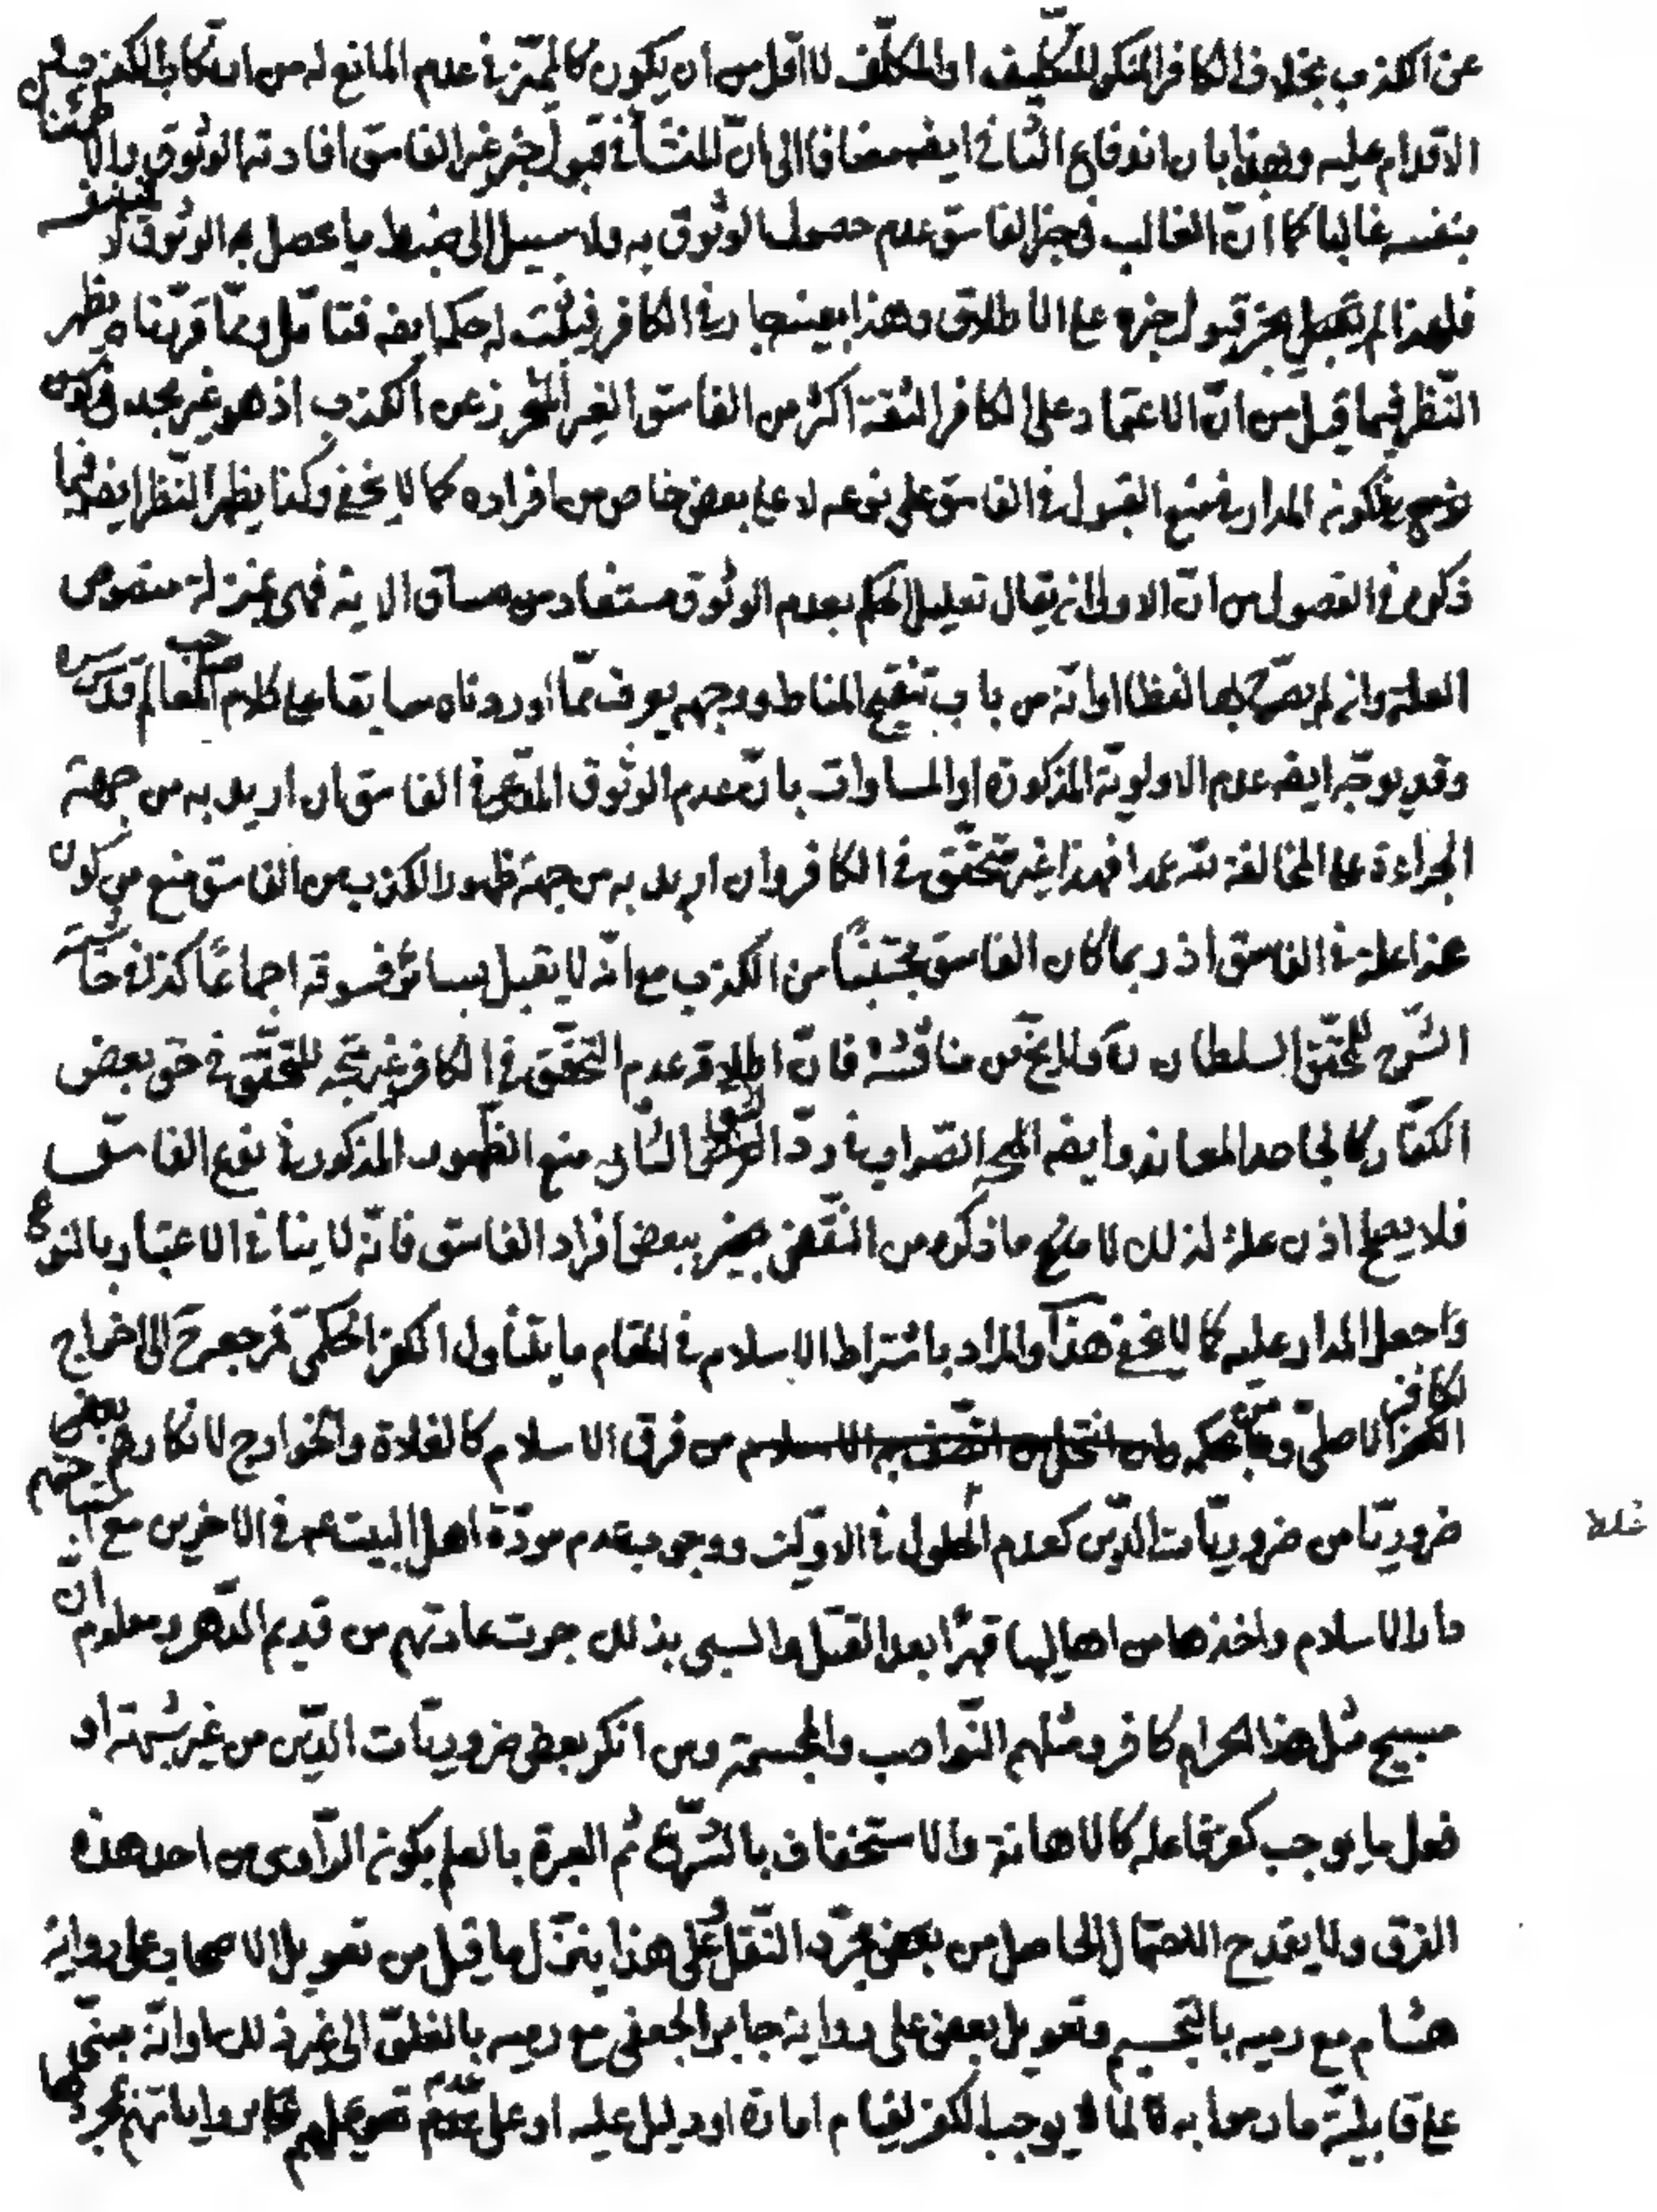 عن الكذب بخلاف الكافر المنكر للتكليف او المكلّف لا اقل من أن يكون كالمميّز فى عدم المانع له من ارتكاب الكذب
الاقدام عليه وبهذا بان اندفاع الثانى ايضه مضافا الى انّ المنشأ فى قبول خبر غير الفاسق افادته الوثوق والا
بنفسه غالبا كما انّ الغالب فى خبر الفاسق عدم حصول الوثوق به ولا سبيل الى ضبط ما يحصل به الوثوق
فلهذا لم يجعل خبره قبول خبره على الاطلاق وهذا بعينه جار فى الكافر فيثبت له حكمه ايضه فتامّل وممّا قرّرناه يظهر
النّظر فيما قيل من انّ الاعتماد على الكافر الثقة اكثر من الفاسق الغير المتحرز عن الكذب اذ هو غير مجد فى كون
المدار فى منع القبول فى الفاسق على نوعه لا على بعض خاص من افراده كما لا يخفى وكذا يظهر النّظر ايضه فيما
ذكره فى الفصول من انّ الاولى ان يقال تعليل الحكم بعدم الوثوق مستفاد من مساق الاية فهى بمنزلة منصوص
العلة وان لم يصرّح بها لفظا او انّه من باب تنقيح المناط ووجهه يعرف ممّا اوردناه سابقا على كلام صاحب المعالم قدّس سره
وقد يوجّه ايضه عدم الاولويّة المذكورة او المساوات بانّ عدم الوثوق المدّعى فى الفاسق ان اريد به من جهة
الجراءة على المخالفة لله عمدا فهذا غير متحقّق فى الكافر وان اريد به من جهة ظهور الكذب من الفاسق منع من كون
هذا علة فى الفاسق اذ ربما كان الفاسق مجتنبًا من الكذب مع انّه لا يقبل لسائر فسوقه اجماعًا كذا فى حاشية
الشرح للمحقّق السلطان ره ولا يخ من مناقشة فانّ اطلاق عدم التحقّق فى الكافر غير متّجه للتحقّق فى حق بعض
الكفّار كالجاحد المعاند وايضه الصّواب فى ردّ الشق الثانى منع الظّهور المذكور فى نوع الفاسق
فلا يصلح اذن علة لذلك لا منع ما ذكره من النّقض ببعض افراد الفاسق فانّه لا ينافى الاعتبار بالنوع
وجعل المدار عليه كما لا يخفى هذا والمراد باشتراط الاسلام فى المقام ما يتناول الكفر الحكمىّ فمرجعه الى اخراج
الكافر الاصلىّ من فرق الاسلام كالغلاة والخوارج لانكارهم بعض
ضروريّا من ضروريّات الدّين كعدم الحلول فى الاوّلين ووجوب مودّة اهل البيت عم فى الاخرين مع
دار الاسلام واخذها من اهاليها قهرًا بعد القتل والسبى بذلك جرت عادتهم من قديم الدّهر ومعلوم انّ
مبيح مثل هذا الحرام كافر ومثلهم النّواصب والمجسمة ومن انكر بعض ضروريّات الدّين من غير شبهة او
فعل ما يوجب كفر فاعله كالاهانة والاستخفاف بالشّرع ثم العبرة بالعلم بكونه الرّاوى من احد هذه
الفرق ولا يقدح الاحتمال الحاصل من مجرّد النّقل وعلى هذا ينزّل ما قيل من تعويل الاصحاب على رواية
هشام مع رميه بالتجسيم وتعويل بعض على رواية جابر الجعفى مع رميه بالغلوّ الى غير ذلك او انّه مبنى
على قابليّة ما رموا به لما لا يوجب الكفر لقيام امارة او دليل عليه او على عدم تعويلهم على رواياتهم
غلط